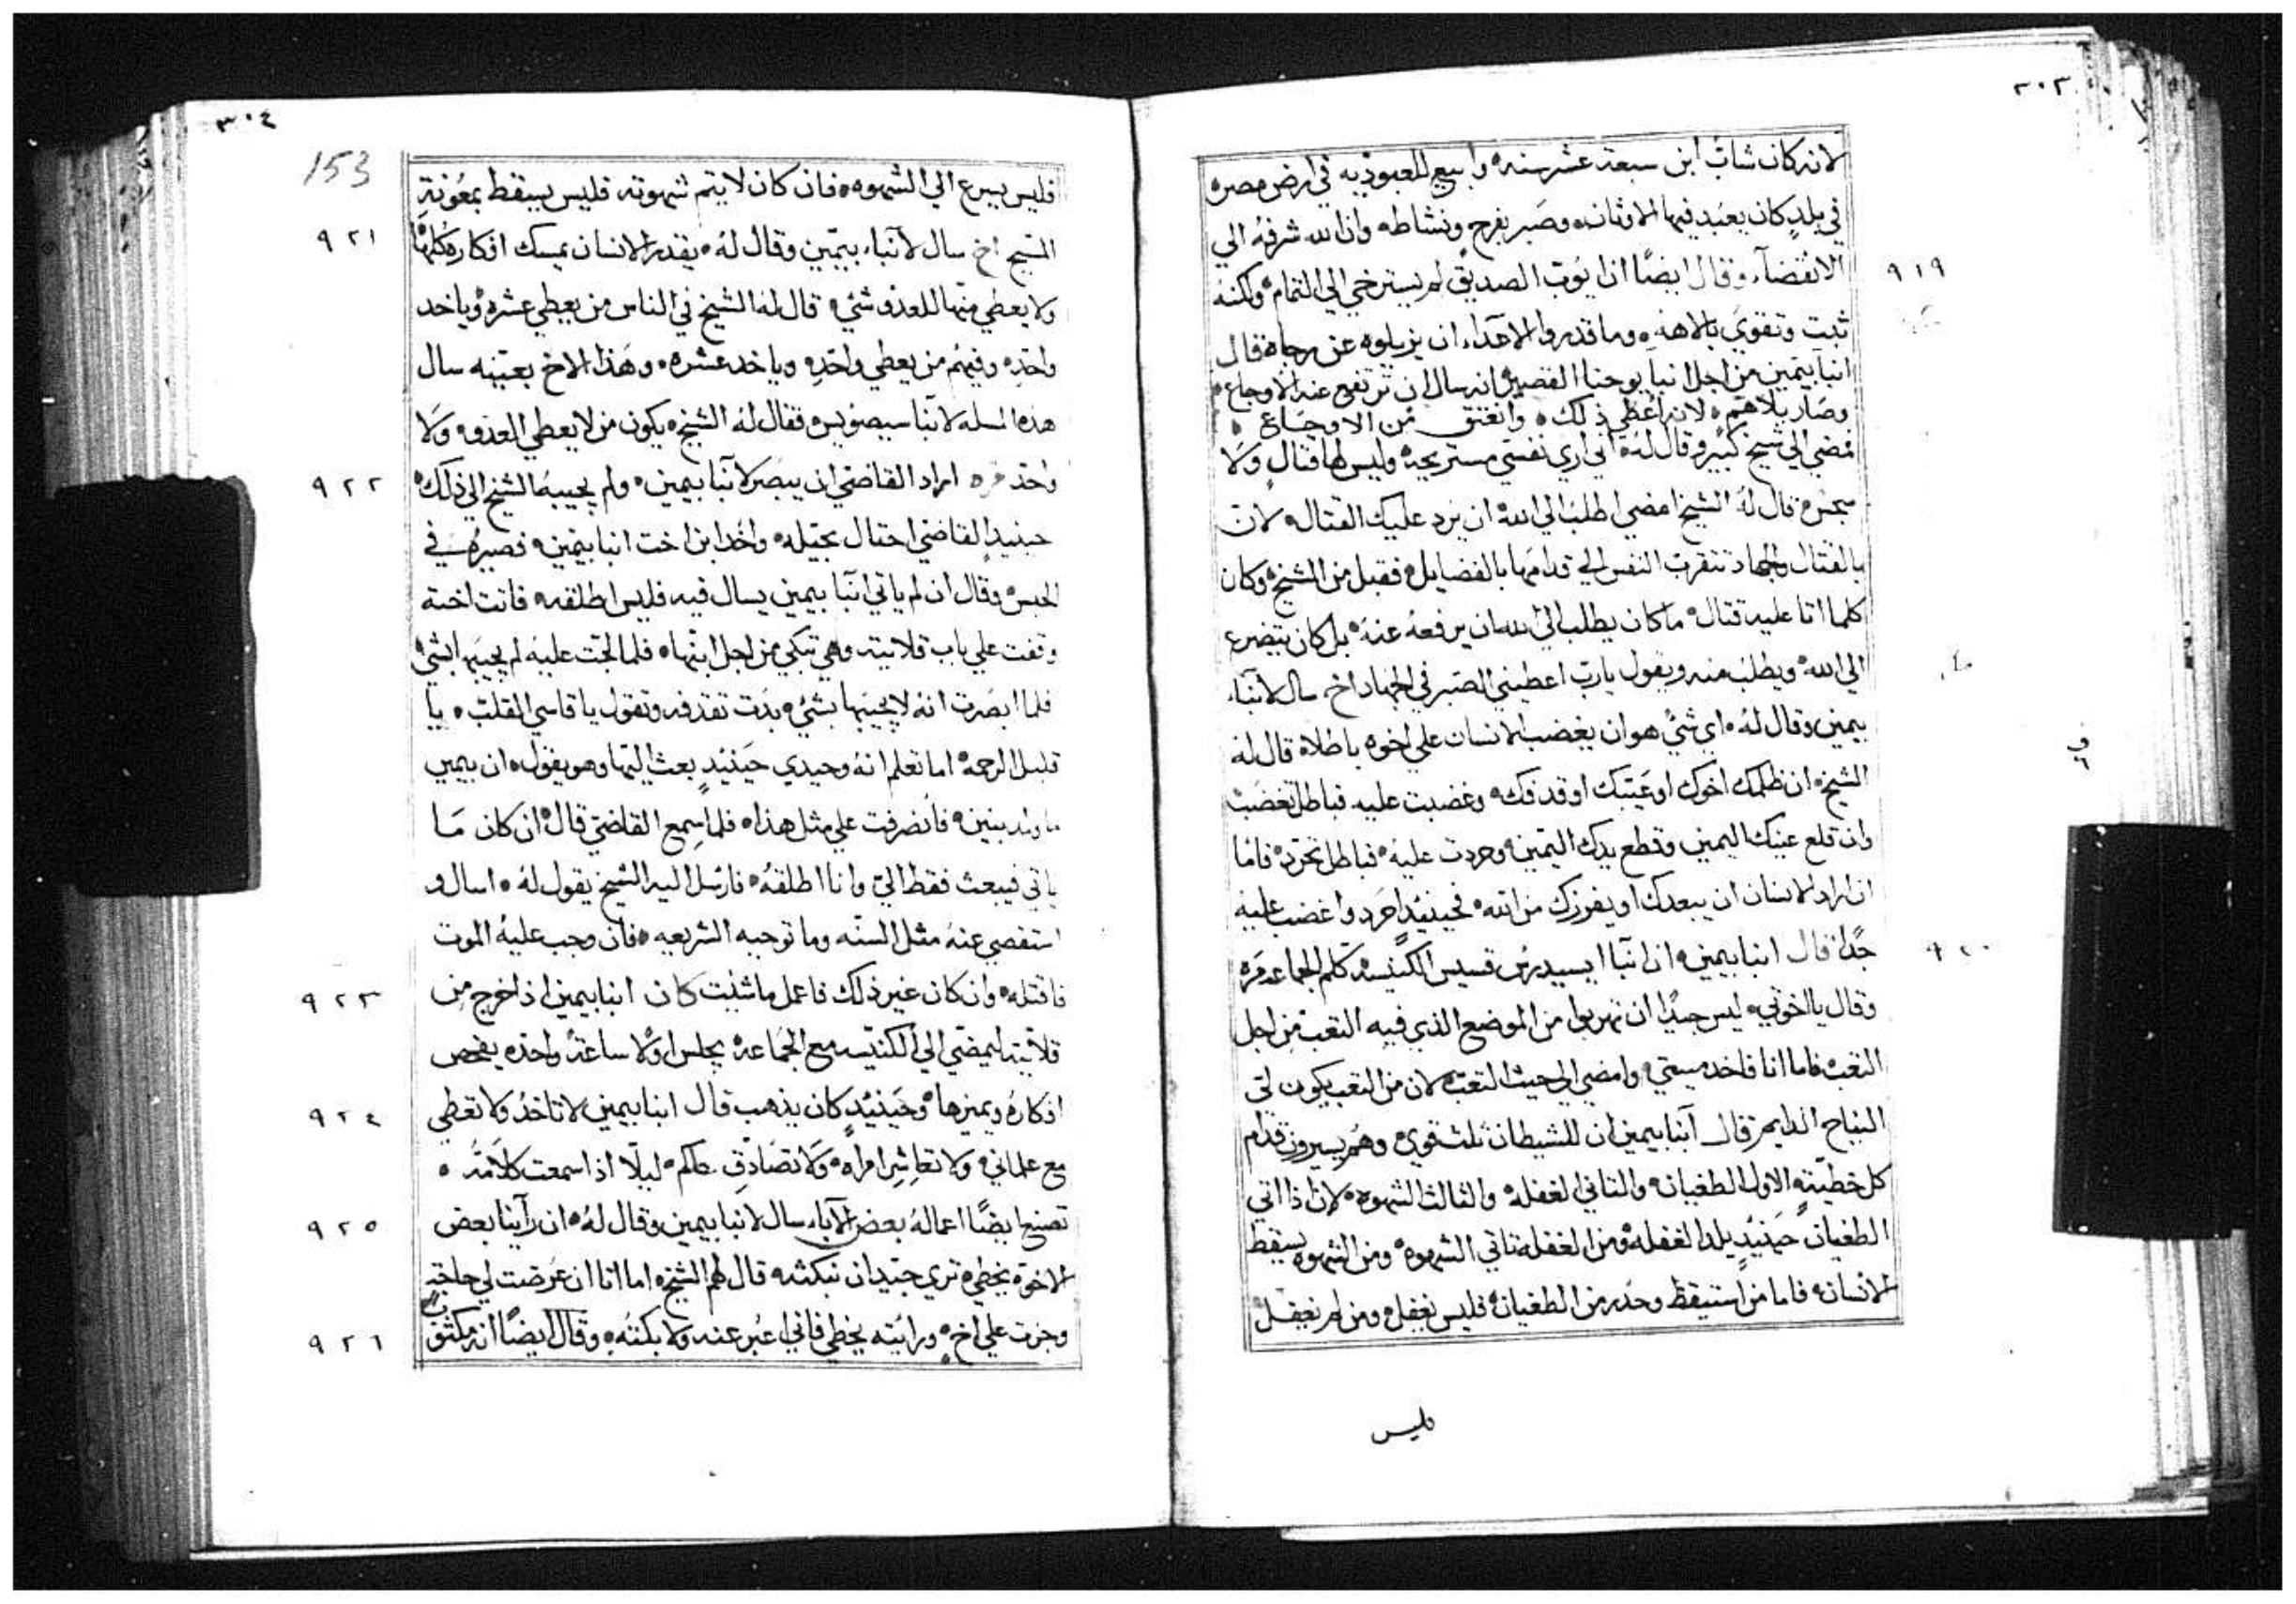 ٣٠٣
لانه كان شاب ابن سبعة عشر سنه وابيع للعبوديه في ارض مصر
في بلد كان يعبد فيها الاوثان وصبر بفرح ونشاط وان الله شرفه الي
الانقضاء وقال ايضًا ان ايوب الصديق لم يسترخي الي التمام ولكنه
٩١٩
ثبت وتقوي بالاهه وما قدروا الاعداء ان يزيلوه عن رجاه قال
انبا بيمين من اجل انبا يوحنا القصير انه سال ان ترتفع عنه الاوجاع
وصار بلا هم لانه اعطي ذلك وانعتق من الاوجاع
فمضي الي شيخ كبير وقال له اني اري نفسي مستريحه وليس لها قتال ولا
قال له الشيخ امضي اطلب الي الله ان يرد عليك القتال لان
بالقتال والجهاد تتقرب النفس الي قدامها بالفضايل فقبل من الشيخ وكان
كلما اتا عليه قتال ما كان يطلب الي الله ان يرفعه عنه بل كان يتضرع
الي الله ويطلب منه ويقول يا رب اعطيني الصبر في الجهاد اخ سال لانبا
بيمين وقال له اي شي هو ان يغضب الانسان علي اخوه باطلا قال له
الشيخ ان ظلمك اخوك او عيبك او قدفك وغضبت عليه فباطل تغضب
وان قلع عينك اليمين وقطع يدك اليمين وحردت عليه فباطل تحرد فاما
ان اراد الانسان ان يبعدك او يفرزك من الله فحينيد احرد واغضب عليه
جدًا قال انبا بيمين ان انبا ايسيدرس قسيس الكنيسه كلم الجماعه مره
٩٢٠
وقال يا اخوتي ليس جيدًا ان تهربوا من الموضع الذي فيه التعب من اجل
التعب فاما انا فاخد وامضي الي حيث التعب لان من التعب يكون لي
النياح الدايم قال انبا بيمين ان للشيطان ثلث قوي وهم يسيرون قدام
كل خطيته الاول الطغيان والتاني الغفله والثالث الشهوه لان اذا اتي
الطغيان حينيد يلد الغفله ومن الغفله تاتي الشهوه ومن الشهوه يسقط
الانسان فاما من استيقظ وحدر من الطغيان فليس يغفل ومن لم يغفل
فليس
٣٠٤
153
فليس يسرع الي الشهوه فان كان لا يتم شهوته فليس يسقط بمعونة
المسيح اخ سال لانبا بيمين وقال له يقدر الانسان يمسك افكاره كلها
٩٢١
ولا يعطي منها للعدو شي قال له الشيخ في الناس من يعطي عشره وياخد
واحده وفيهم من يعطي واحده وياخد عشره وهذا الاخ بعينه سال
هذه المسله لانبا سيصويس فقال له الشيخ يكون من لا يعطي العدو ولا
واحده اراد القاضي ان يبصر لانبا بيمين ولم يجيبه الشيخ الي ذلك
٩٢٢
حينيد القاضي احتال بحيله واخد ابن اخت انبا بيمين فصيره في
الحبس وقال ان لم ياتي انبا بيمين يسال فيه فليس اطلقه فاتت اخته
وقفت علي باب قلايته وهي تبكي من اجل ابنها فلما الحت عليه لم يجيبها بشي
فلما ابصرت انه لا يجيبها بشي بدت تقدفه وتقول يا قاسي القلب يا
قليل الرحمه اما تعلم انه وحيدي حينيد بعث اليها وهو يقول ان بيمين
ما ولد بنين فانصرفت علي مثل هذا فلما سمع القاضي قال ان كان ما
ياتي فيبعث فقط الي وانا اطلقه فارسل اليه الشيخ يقول له اسال و
استقصي عنه مثل السنه وما توجبه الشريعه فان وجب عليه الموت
فاقتله وان كان غير ذلك فاعمل ما شئت كان انبا بيمين اذا خرج من
٩٢٣
قلايته ليمضي الي الكنيسه مع الجماعه يجلس اولا ساعة واحده يفحص
افكاره ويميزها وحينيد كان يذهب قال انبا بيمين لا تاخد ولا تعطي
٩٢٤
مع علماني ولا تعاشر امراه ولا تصادق حاكم ليلا اذا سمعت كلامه
تصنع ايضًا اعماله بعض الاباء سال لانبا بيمين وقال له ان راينا بعض
٩٢٥
الاخوه يخطي تري جيد ان نبكته قال لهم الشيخ اما انا ان عرضت لي حاجة
وجزت علي اخ ورايته يخطي فاني اعبر عنه ولا بكته وقال ايضًا انه مكتوب
٩٢٦